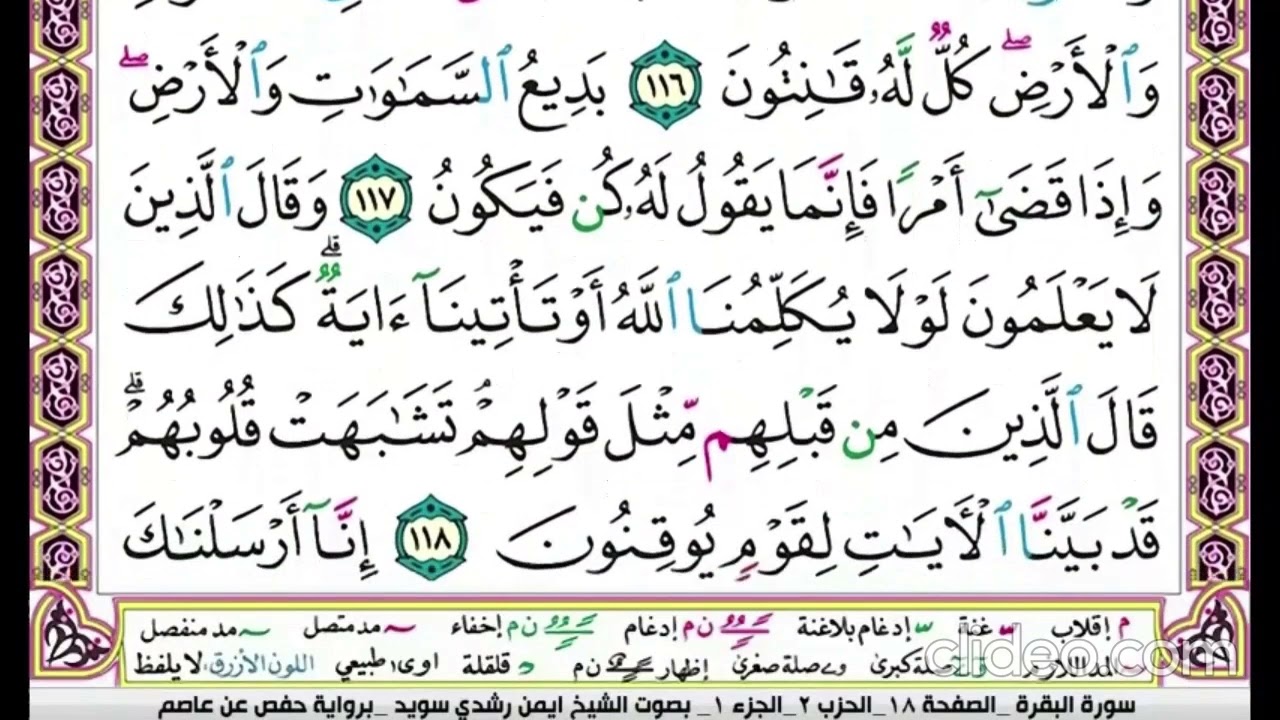 وَٱلْأَرْضِ ۖ كُلٌّ لَّهُۥ قَـٰنِتُونَ ١١٦ بَدِيعُ ٱلسَّمَـٰوَٰتِ وَٱلْأَرْضِ ۖ
وَإِذَا قَضَىٰٓ أَمْرًا فَإِنَّمَا يَقُولُ لَهُۥ كُن فَيَكُونُ ١١٧ وَقَالَ ٱلَّذِينَ
لَا يَعْلَمُونَ لَوْلَا يُكَلِّمُنَا ٱللَّهُ أَوْ تَأْتِينَآ ءَايَةٌ ۗ كَذَٰلِكَ
قَالَ ٱلَّذِينَ مِن قَبْلِهِم مِّثْلَ قَوْلِهِمْ ۘ تَشَـٰبَهَتْ قُلُوبُهُمْ ۗ
قَدْ بَيَّنَّا ٱلْـَٔايَـٰتِ لِقَوْمٍ يُوقِنُونَ ١١٨ إِنَّآ أَرْسَلْنَـٰكَ
م إقلاب غنة إدغام بلاغنة ن م إدغام ن م إخفاء مد متصل مد منفصل
المد اللازم صلة كبرى و ے صلة صغرى إظهار ن م د قلقلة اوى، طبيعي اللون الأزرق، لا يلفظ
clideo.com
سورة البقرة _الصفحة ١٨_الحزب ٢_الجزء ١_ بصوت الشيخ ايمن رشدي سويد _برواية حفص عن عاصم